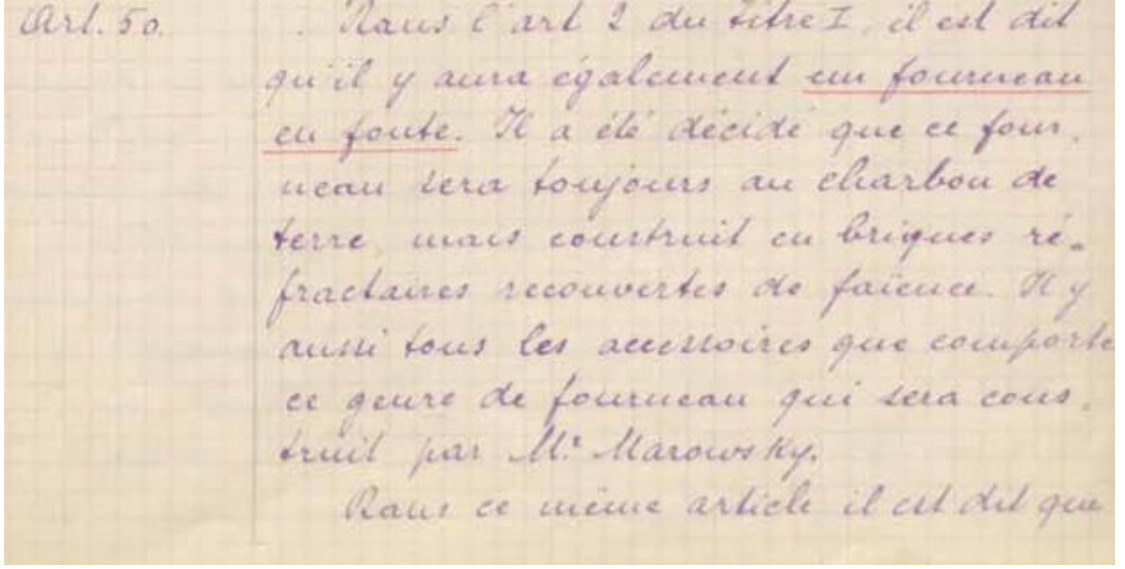 Art. 50. Dans l'art 2 du titre I, il est dit
qu'il y aura également un fourneau
en fonte. Il a été décidé que ce four-
neau sera toujours au charbon de
terre, mais construit en briques ré-
fractaires recouvertes de faïence. Il y
aussi tous les accessoires que comporte
ce genre de fourneau qui sera cons-
truit par Mr. Marowsky.
Dans ce même article il est dit que